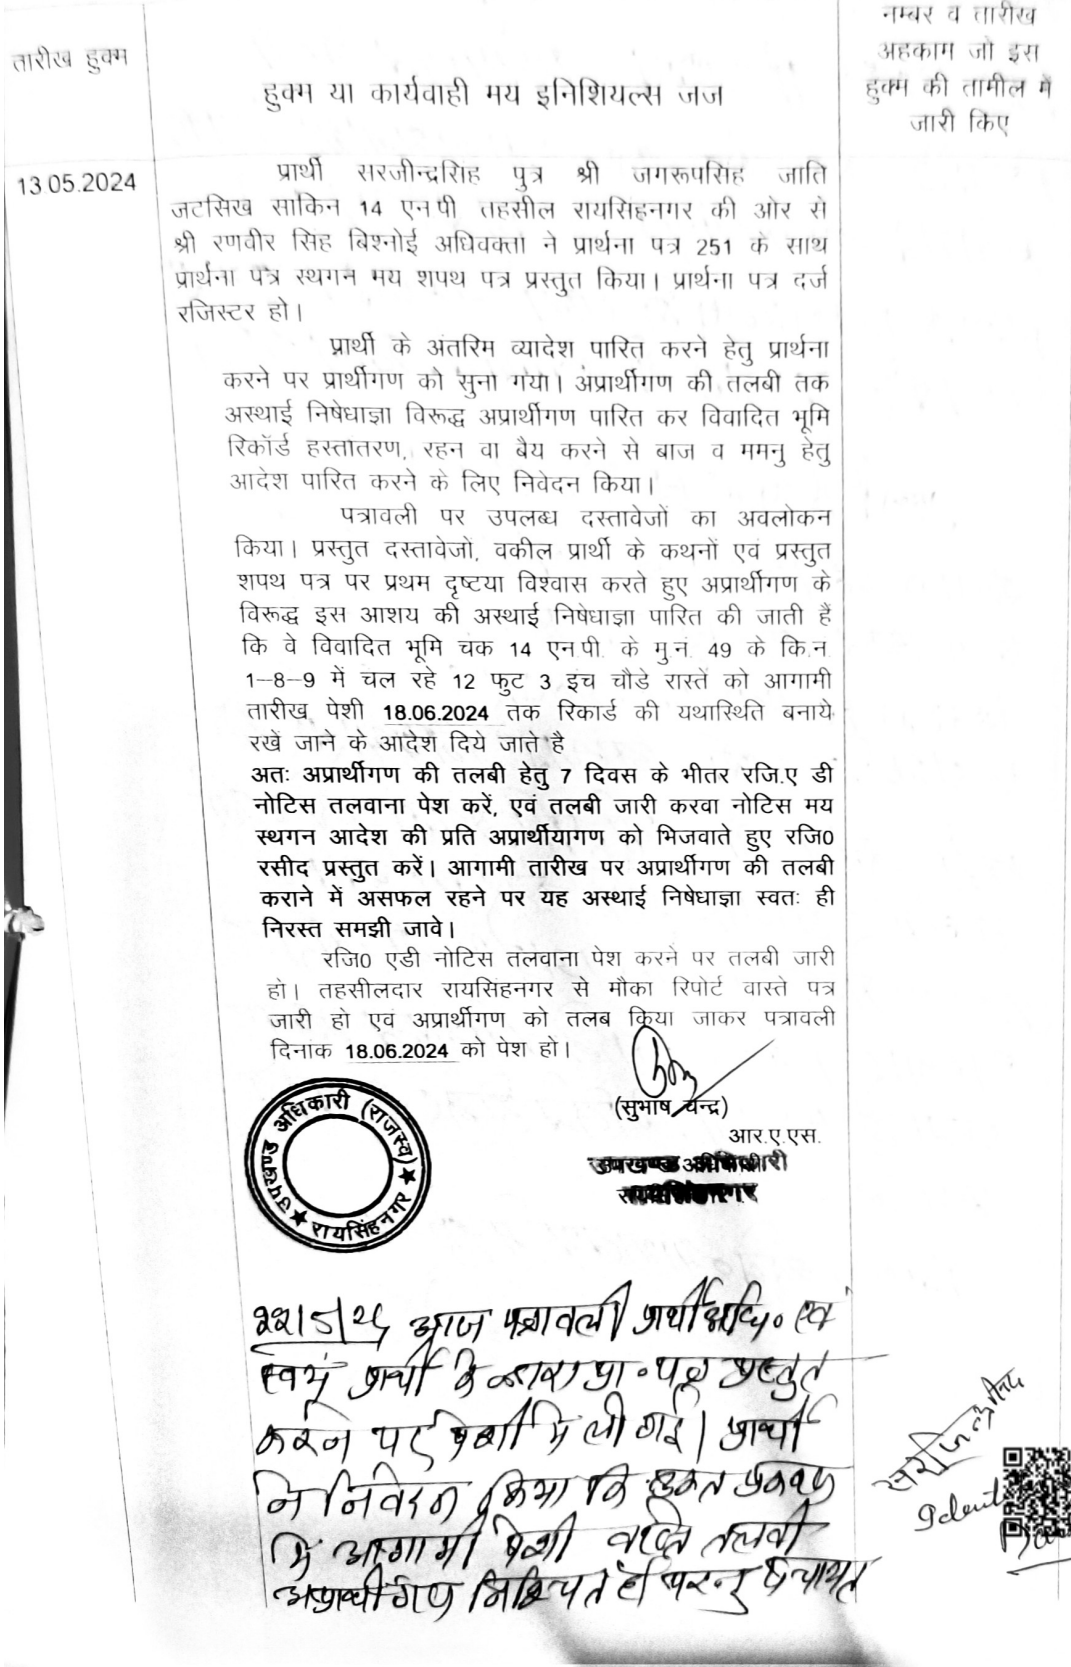 तारीख हुक्म
हुक्म या कार्यवाही मय इनिशियल्स जज
नम्बर व तारीख
अहकाम जो इस
हुक्म की तामील में
जारी किए
13.05.2024
प्रार्थी सरजीन्द्रसिंह पुत्र श्री जगरूपसिंह जाति
जटसिख साकिन 14 एनपी तहसील रायसिंहनगर की ओर से
श्री रणवीर सिंह बिश्नोई अधिवक्ता ने प्रार्थना पत्र 251 के साथ
प्रार्थना पत्र स्थगन मय शपथ पत्र प्रस्तुत किया। प्रार्थना पत्र दर्ज
रजिस्टर हो।
प्रार्थी के अंतरिम व्यादेश पारित करने हेतु प्रार्थना
करने पर प्रार्थीगण को सुना गया। अप्रार्थीगण की तलबी तक
अस्थाई निषेधाज्ञा विरूद्ध अप्रार्थीगण पारित कर विवादित भूमि
रिकॉर्ड हस्तांतरण, रहन वा बैय करने से बाज व ममनु हेतु
आदेश पारित करने के लिए निवेदन किया।
पत्रावली पर उपलब्ध दस्तावेजों का अवलोकन
किया। प्रस्तुत दस्तावेजों, वकील प्रार्थी के कथनों एवं प्रस्तुत
शपथ पत्र पर प्रथम दृष्टया विश्वास करते हुए अप्रार्थीगण के
विरूद्ध इस आशय की अस्थाई निषेधाज्ञा पारित की जाती है
कि वे विवादित भूमि चक 14 एन.पी. के मु.नं. 49 के कि.न.
1–8–9 में चल रहे 12 फुट 3 इंच चौडे रास्ते को आगामी
तारीख पेशी 18.06.2024 तक रिकार्ड की यथास्थिति बनाये
रखें जाने के आदेश दिये जाते है
अतः अप्रार्थीगण की तलबी हेतु 7 दिवस के भीतर रजि.ए डी
नोटिस तलवाना पेश करें, एवं तलबी जारी करवा नोटिस मय
स्थगन आदेश की प्रति अप्रार्थीयागण को भिजवाते हुए रजि0
रसीद प्रस्तुत करें। आगामी तारीख पर अप्रार्थीगण की तलबी
कराने में असफल रहने पर यह अस्थाई निषेधाज्ञा स्वतः ही
निरस्त समझी जावे।
रजि0 एडी नोटिस तलवाना पेश करने पर तलबी जारी
हो। तहसीलदार रायसिंहनगर से मौका रिपोर्ट वास्ते पत्र
जारी हो एवं अप्रार्थीगण को तलब किया जाकर पत्रावली
दिनांक 18.06.2024 को पेश हो।
(सुभाष चन्द्र)
आर.ए.एस.
उपखण्ड अधिकारी
रायसिंहनगर
उपखण्ड अधिकारी (राजस्व) ★ रायसिंहनगर ★
22/5/24 आज पत्रावली प्रार्थी अधि. एवं
स्वयं प्रार्थी के द्वारा प्रा. पत्र प्रस्तुत
करने पर पेशी में ली गई। प्रार्थी
ने निवेदन किया कि उक्त प्रकरण
में आगामी पेशी वास्ते तलबी
अप्रार्थीगण निश्चित है परन्तु पंचायत
सरजिन्द्र सिंह